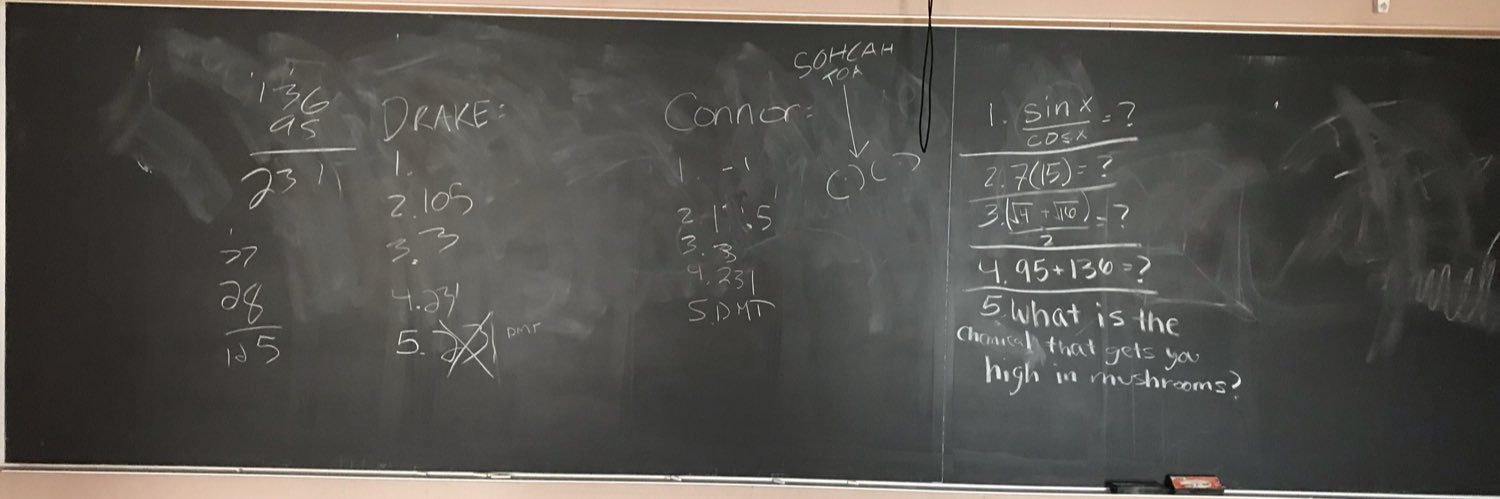 1 1
136
95
231
37
28
125
DRAKE:
1.
2. 105
3. 3
4. 231
5. 231 DMT
SOHCAH
TOA
Connor:
1. -1
2. 1 .5
3. 3
4. 231
5. DMT
( ) ( )
1. sin x / cos x = ?
2. 7(15) = ?
3. (√4 + √16) / 2 = ?
4. 95 + 136 = ?
5. What is the
chemical that gets you
high in mushrooms?